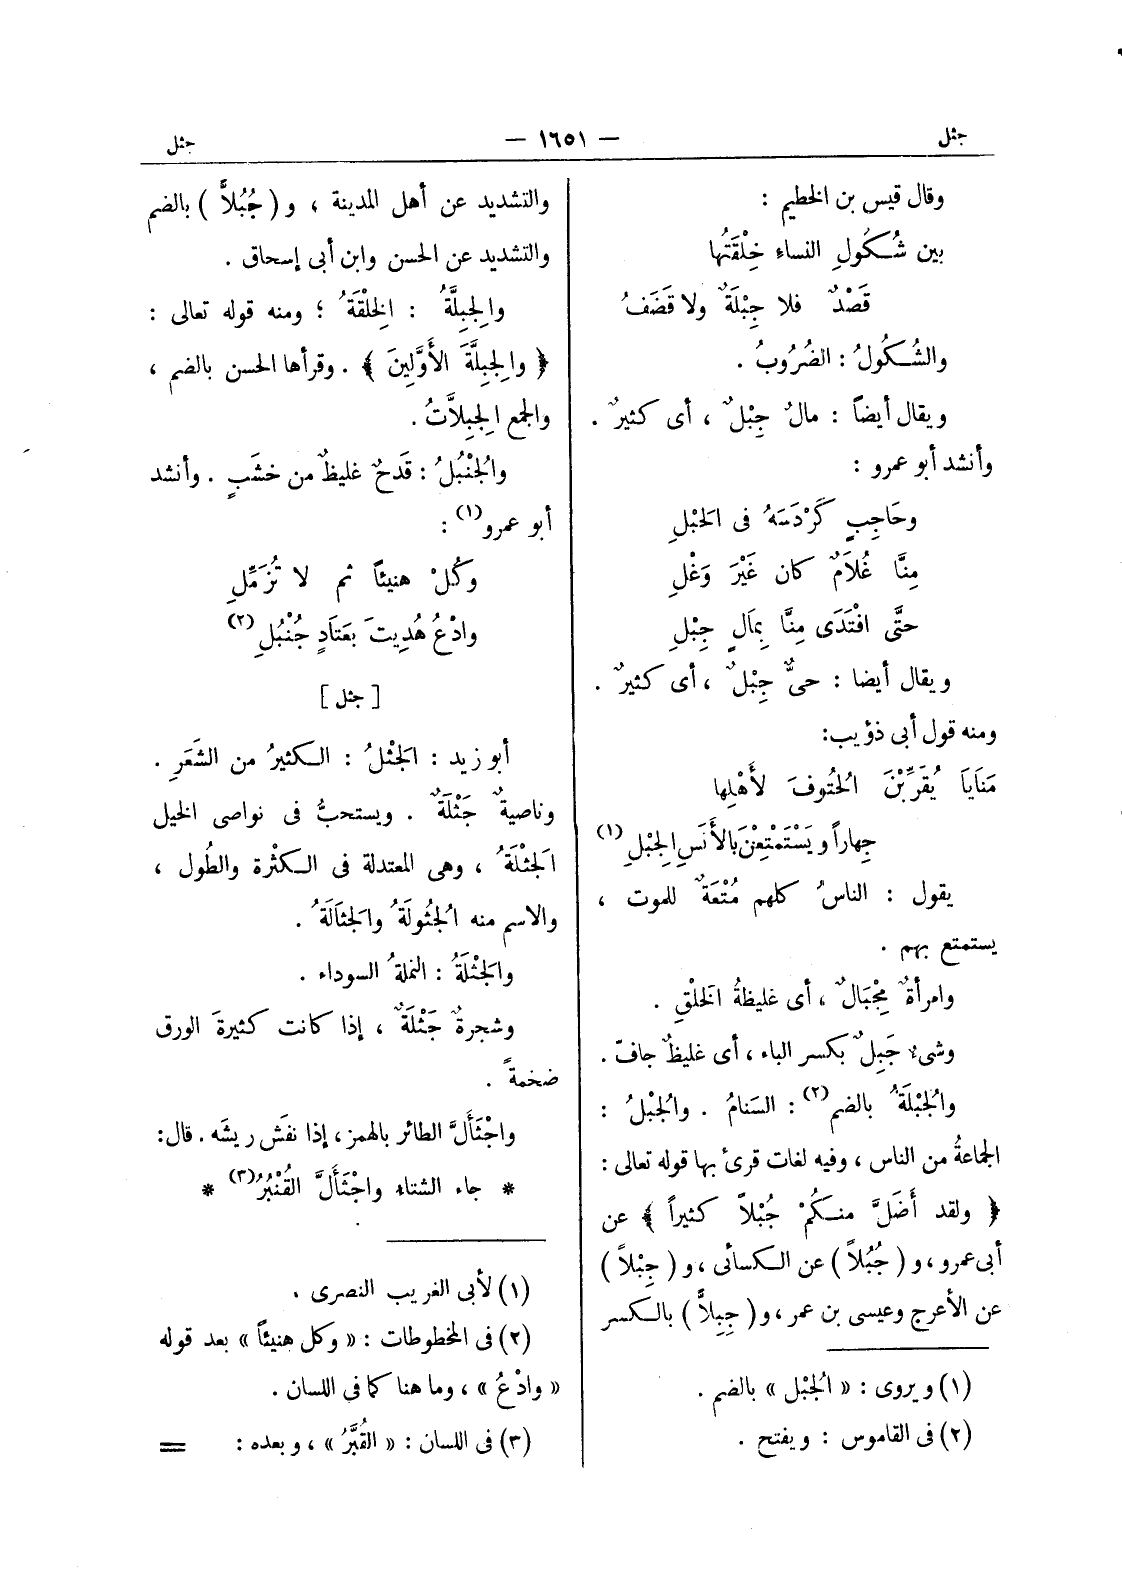 جثل
— ١٦٥١ —
جثل
وقال قيس بن الخطيم :
بين شُكُولِ النساءِ خِلْقَتُها
قَصْدٌ فلا جِبْلَةٌ ولا قَضَفُ
والشُكُولُ : الضُرُوبُ .
ويقال أيضاً : مالٌ جِبْلٌ ، أى كثيرٌ .
وأنشد أبو عمرو :
وحَاجِبٍ كَرْدَسَهُ فى الحَبْلِ
مِنَّا غُلَامٌ كان غَيْرَ وَغْلِ
حتَّى افْتَدَى مِنَّا بِمَالٍ جِبْلِ
ويقال أيضا : حىٌّ جِبْلٌ ، أى كثيرٌ .
ومنه قول أبى ذؤيب:
مَنَايَا يُقَرِّبْنَ الحُتُوفَ لأَهْلِها
جِهاراً ويَسْتَمْتِعْنَ بالأَنَسِ الجِبْلِ (١)
يقول : الناسُ كلهم مُتْعَةٌ للموت ،
يستمتع بهم .
وامرأةٌ مِجْبَالٌ ، أى غليظةُ الخَلْقِ .
وشىءٌ جَبِلٌ بكسر الباء ، أى غليظٌ جافٌ .
والجُبْلَةُ بالضم (٢) : السَنامُ . والجُبْلُ :
الجماعةُ من الناس ، وفيه لغات قرئ بها قوله تعالى :
﴿ ولقد أَضَلَّ منكُمْ جُبْلاً كثيراً ﴾ عن
أبى عمرو ، و ( جُبُلاً ) عن الكسائى ، و ( جِبْلاً )
عن الأعرج وعيسى بن عمر ، و ( جِبِلاًّ ) بالكسر
(١) ويروى : « الجُبْل » بالضم .
(٢) فى القاموس : ويفتح .
والتشديد عن أهل المدينة ، و ( جُبُلاًّ ) بالضم
والتشديد عن الحسن وابن أبى إسحاق .
والجِبِلَّةُ : الخِلْقَةُ ؛ ومنه قوله تعالى :
﴿ والجِبِلَّةَ الأَوَّلِينَ ﴾ . وقرأها الحسن بالضم ،
والجمع الجِبِلاَّتُ .
والجُنْبُلُ : قَدحٌ غليظٌ من خشَبٍ . وأنشد
أبو عمرو (١) :
وكُلْ هنيئاً ثم لا تُزَمِّلِ
وادْعُ هُدِيتَ بعَتَادٍ جُنْبُلِ (٢)
[ جثل ]
أبو زيد : الجَثْلُ : الكثيرُ من الشَعَرِ .
وناصيةٌ جَثْلَةٌ . ويستحبُّ فى نواصى الخيل
الجَثْلَةُ ، وهى المعتدلة فى الكثْرة والطُول ،
والاسم منه الجُثُولَةُ والجَثَالَةُ .
والجَثْلَةُ : النملةُ السوداء .
وشجرةٌ جَثْلَةٌ ، إذا كانت كثيرةَ الورق
ضخمةً .
واجْثَأَلَّ الطائر بالهمز ، إذا نفَش ريشَه . قال:
* جاء الشتاء واجْثَأَلَّ القُنْبُرُ (٣) *
(١) لأبى الغريب النصرى .
(٢) فى المخطوطات : « وكل هنيئاً » بعد قوله
« وادْعُ » ، وما هنا كما فى اللسان .
(٣) فى اللسان : « القُبَّرُ » ، وبعده : =